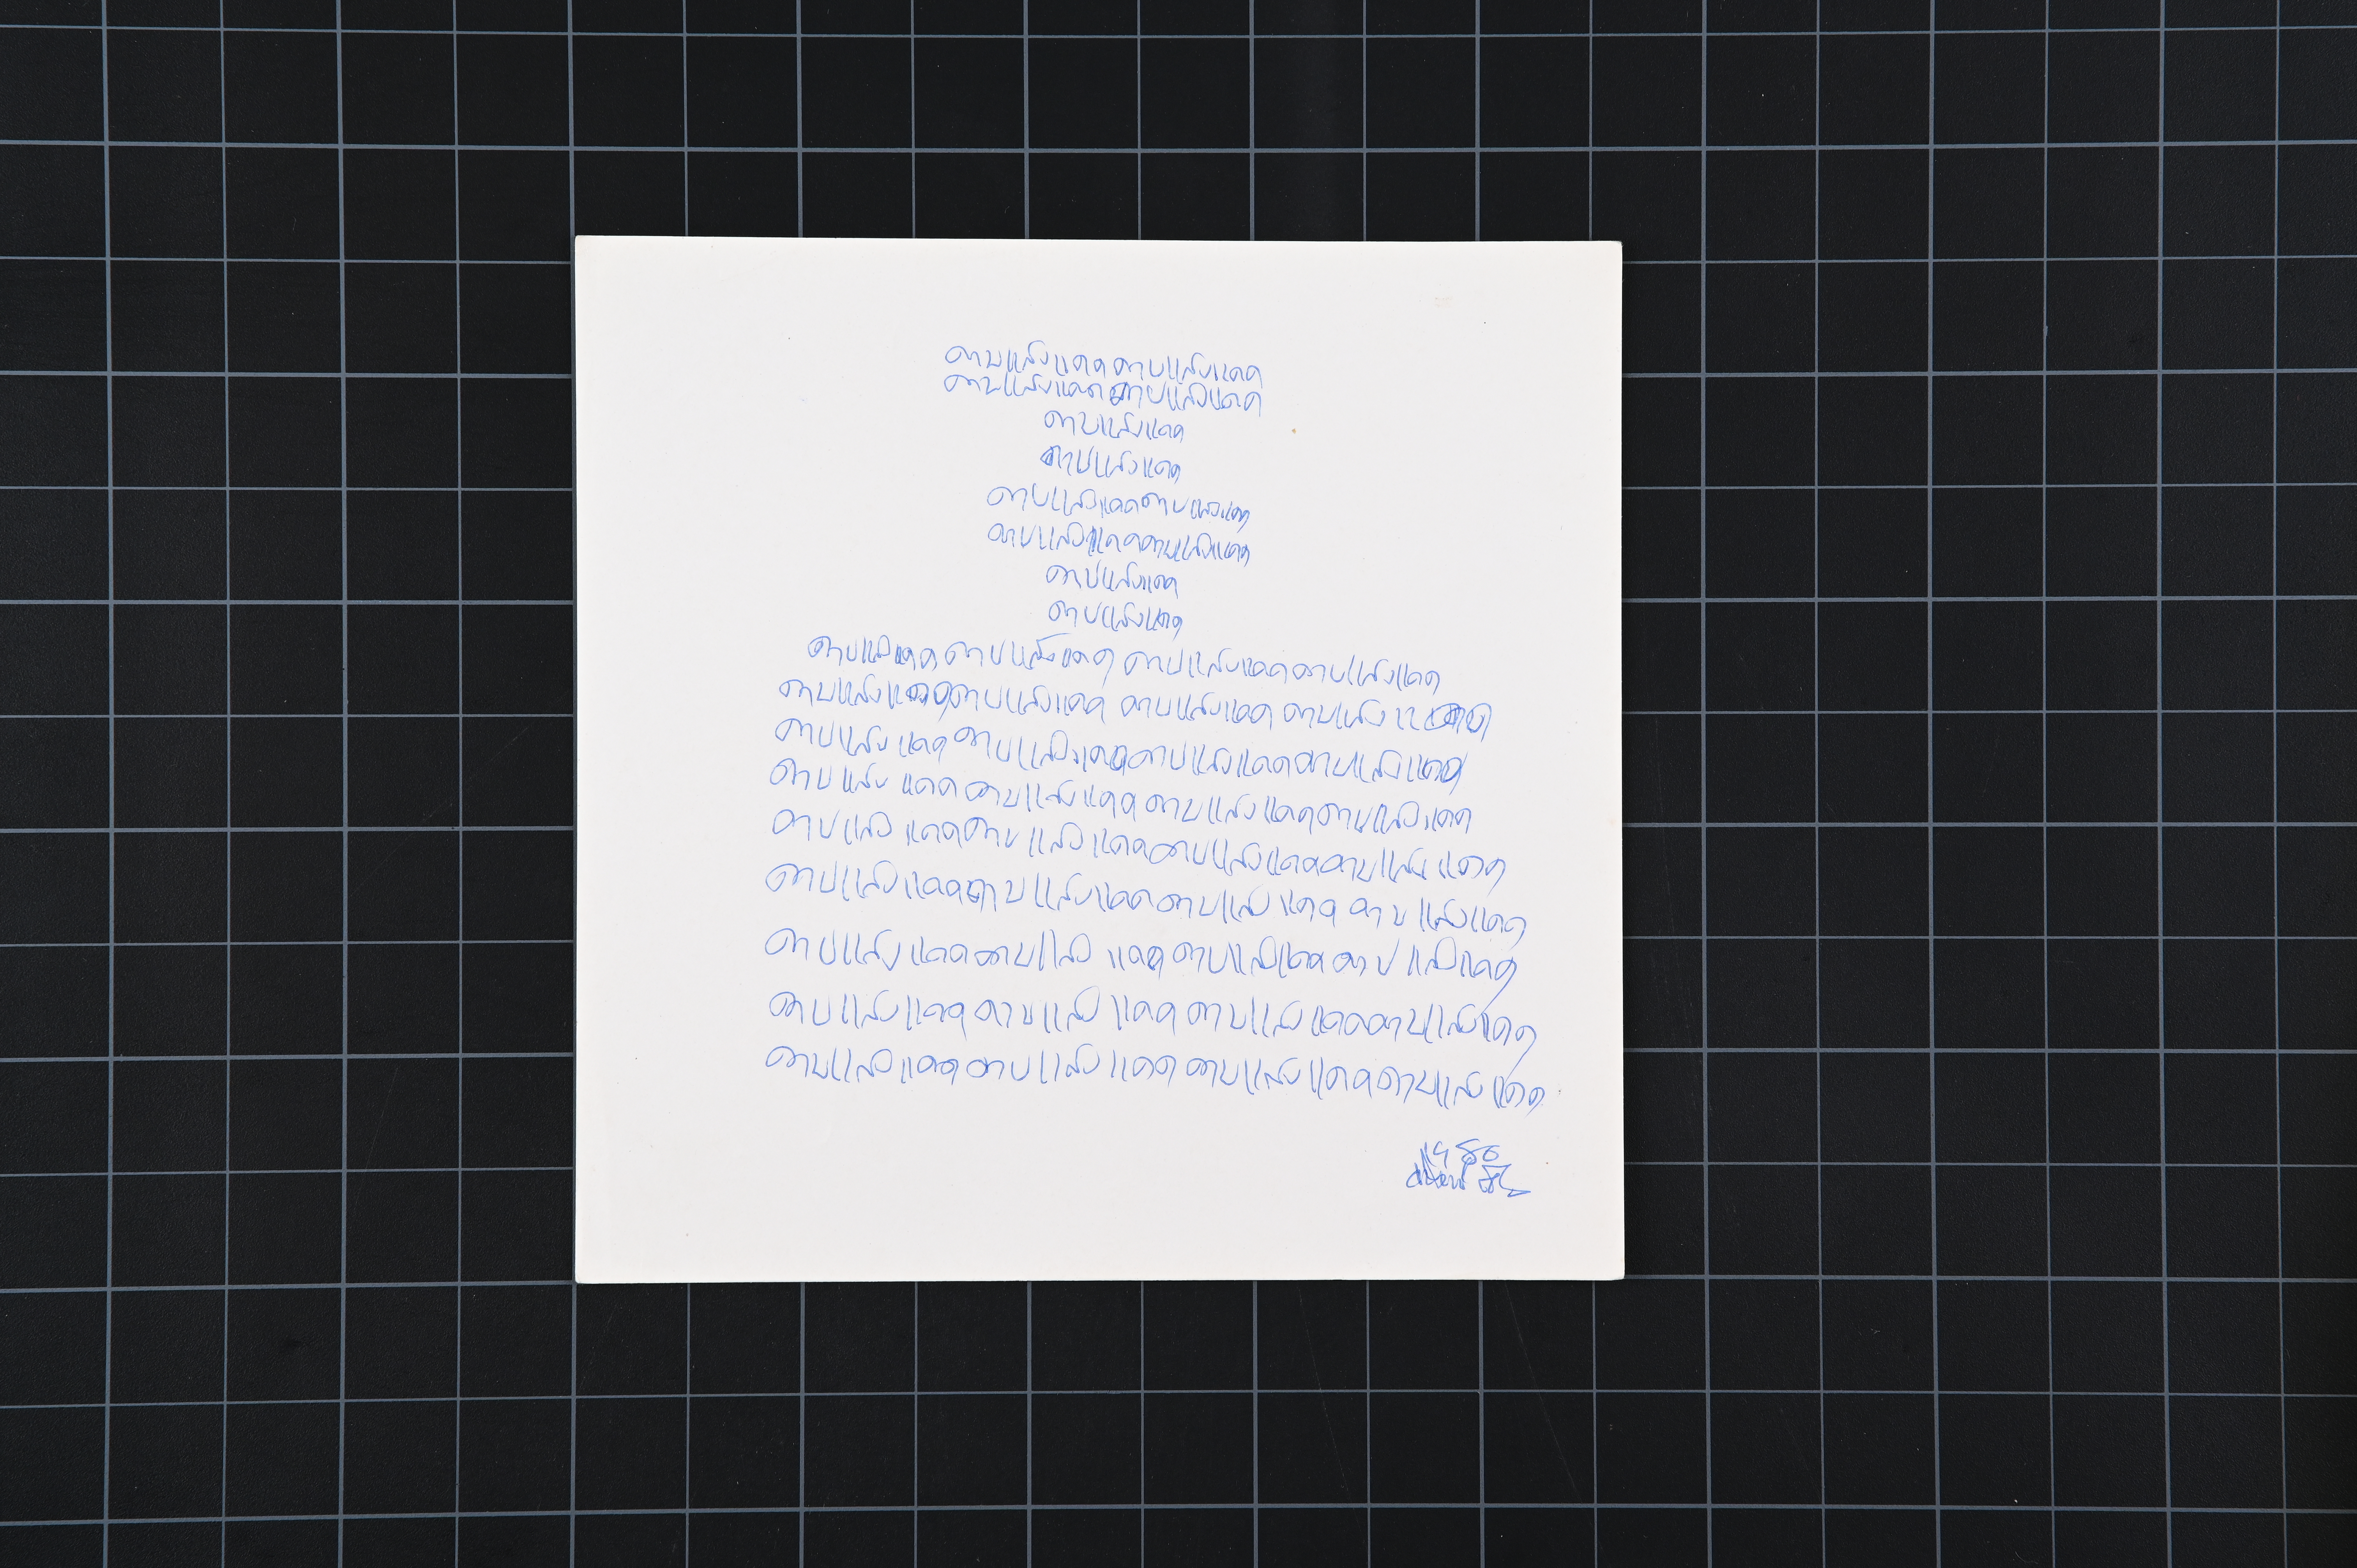 ดาบแสงแดดดาบแสงแดด
ดาบแสงแดดดาบแสงแดด
ดาบแสงแดด
ดาบแสงแดด
ดาบแสงแดดดาบแสงแดด
ดาบแสงแดดดาบแสงแดด
ดาบแสงแดด
ดาบแสงแดด
ดาบแสงแดด ดาบแสงแดด ดาบแสงแดดดาบแสงแดด
ดาบแสงแดดดาบแสงแดด ดาบแสงแดด ดาบแสงแดด
ดาบแสงแดด ดาบแสงแดดดาบแสงแดดดาบแสงแดด
ดาบแสง แดดดาบแสงแดด ดาบแสงแดดดาบแสงแดด
ดาบแสง แดดดาบแสงแดดดาบแสงแดดดาบแสงแดด
ดาบแสงแดดดาบแสงแดดดาบแสงแดด ดาบแสงแดด
ดาบแสงแดดดาบแสง แดดดาบแสงแดดดาบแสงแดด
ดาบแสงแดด ดาบแสง แดด ดาบแสงแดดดาบแสงแดด
ดาบแสงแดดดาบแสงแดด ดาบแสงแดดดาบแสงแดด